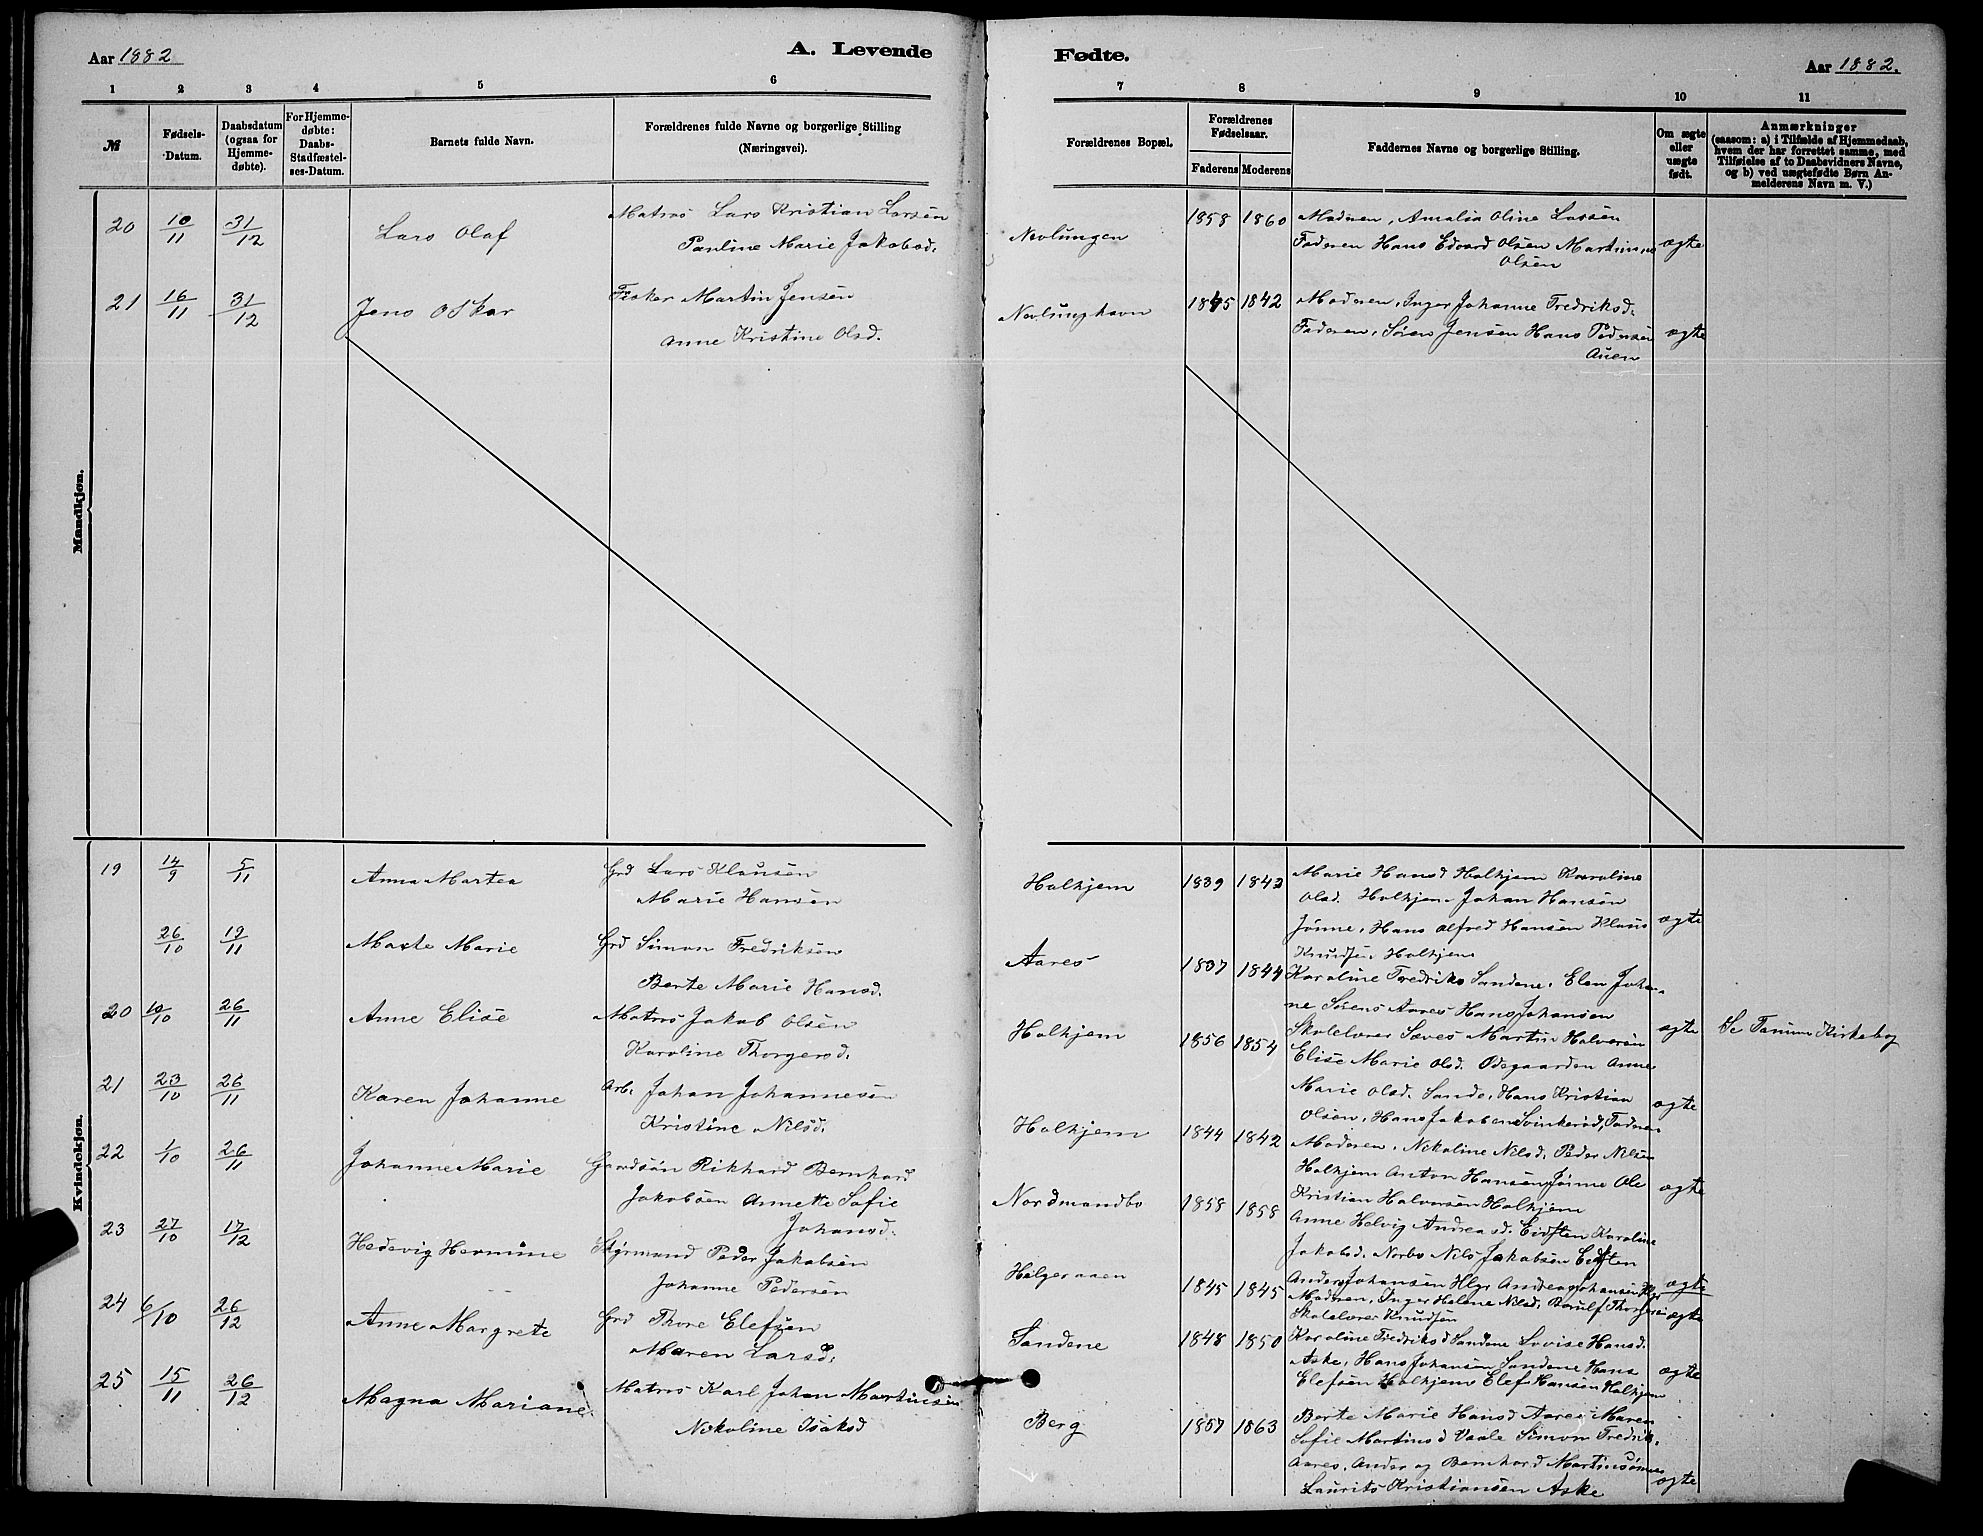 Aar 1882
A. Levende
1 2 3 4 5 6
№
Fødsels-
Datum.
Daabsdatum
(ogsaa for
Hjemme-
døbte).
For Hjemme-
døbte:
Daabs-
Stadfæstel-
ses-Datum.
Barnets fulde Navn.
Forældrenes fulde Navne og borgerlige Stilling
(Næringsvei).
Mandkjøn.
20 10/11 31/12 Lars Olaf Matros Lars Kristian Larsen
Pauline Marie Jakobsd.
21 16/11 31/12 Jens Oskar Fisker Martin Jensen
Anne Kristine Olsd.
Kvindekjøn.
19 14/9 5/11 Anna Martea Grd Lars Klausen
Marie Hansen
26/10 19/11 Marte Marie Grd Simon Fredriksen
Berte Marie Hansd.
20 10/10 26/11 Anne Elise Matros Jakob Olsen
Karoline Thorgersd.
21 23/10 26/11 Karen Johanne Arb. Johan Johannesen
Kristine Nilsd.
22 1/10 26/11 Johanne Marie Gaardsøn Rikhard Bernhard
Jakobsen Annette Sofie
Johansd.
23 27/10 17/12 Hedevig Hermine Styrmand Peder Jakobsen
Johanne Pedersen
24 6/10 26/12 Anne Margrete Grd Thore Elefsen
Maren Larsd.
25 15/11 26/12 Magna Mariane Matros Karl Johan Martinsen
Nikoline Isaksd
Fødte.
Aar 1882.
7 8 9 10 11
Forældrenes Bopæl.
Forældrenes
Fødselsaar.
Faderens Moderens
Faddernes Navne og borgerlige Stilling.
Om ægte
eller
uægte
født.
Anmærkninger
(saasom: a) i Tilfælde af Hjemmedaab,
hvem der har forrettet samme, med
Tilføielse af to Daabsvidners Navne,
og b) ved uægtefødte Børn An-
melderens Navn m. V.)
Nevlungen 1858 1860 Modren, Amalia Oline Larsen
Faderen Hans Edvard Olsen Martinus ægte
Olsen
Nevlunghavn 1845 1842 Moderen, Inger Johanne Fredriksd.
Faderen, Søren Jensen Hans Pedersen ægte
Auen
Holkjem 1839 1842 Marie Hansd Holkjem Karoline
Olsd. Holkjem Johan Hansen
Jønne, Hans Alfred Hansen Klaus ægte
Knudsen Holkjem
Aares 1837 1844 Karoline Fredriks Sandene, Elen Johan-
ne Sørens Aares Hans Johansen
Skolelærer Sæves Martin Halvorsen ægte Se Tanum Kirkebog
Holkjem 1856 1854 Elise Marie Olsd. Ødegaarden Anne
Marie Olsd. Sande, Hans Kristian
Olsen, Hans Jakobsen Svinkerød, Faderen ægte
Holkjem 1844 1842 Moderen, Nikoline Nilsd. Peder Nilsen
Holkjem Anton Hansen Jønne Ole
Kristian Halvorsen Holkjem ægte
Nordmandbo 1858 1858 Anne Helvig Andreasd. Eidsten Karoline
Jakobsd. Norbo Nils Jakobsen Eidsten
Anders Johansen Hlgr Andreas Johansen Hlgr ægte
Helgeraaen 1845 1845 Moderen, Inger Helene Nilsd. Thorgersen ægte
Skolelærer Knudsen
Sandene 1848 1850 Karoline Fredriksd Sandene Lovise Hansd.
Aske, Hans Johansen Sandene Hans
Elefsen Holkjem Elef Hansen Holkjem ægte
Berg 1857 1863 Berte Marie Hansd Aares Maren
Sofie Martinsd Vaale Simon Fredrik.
Aares, Ander og Bernhard Martinsønner
Laurits Kristiansen Aske ægte